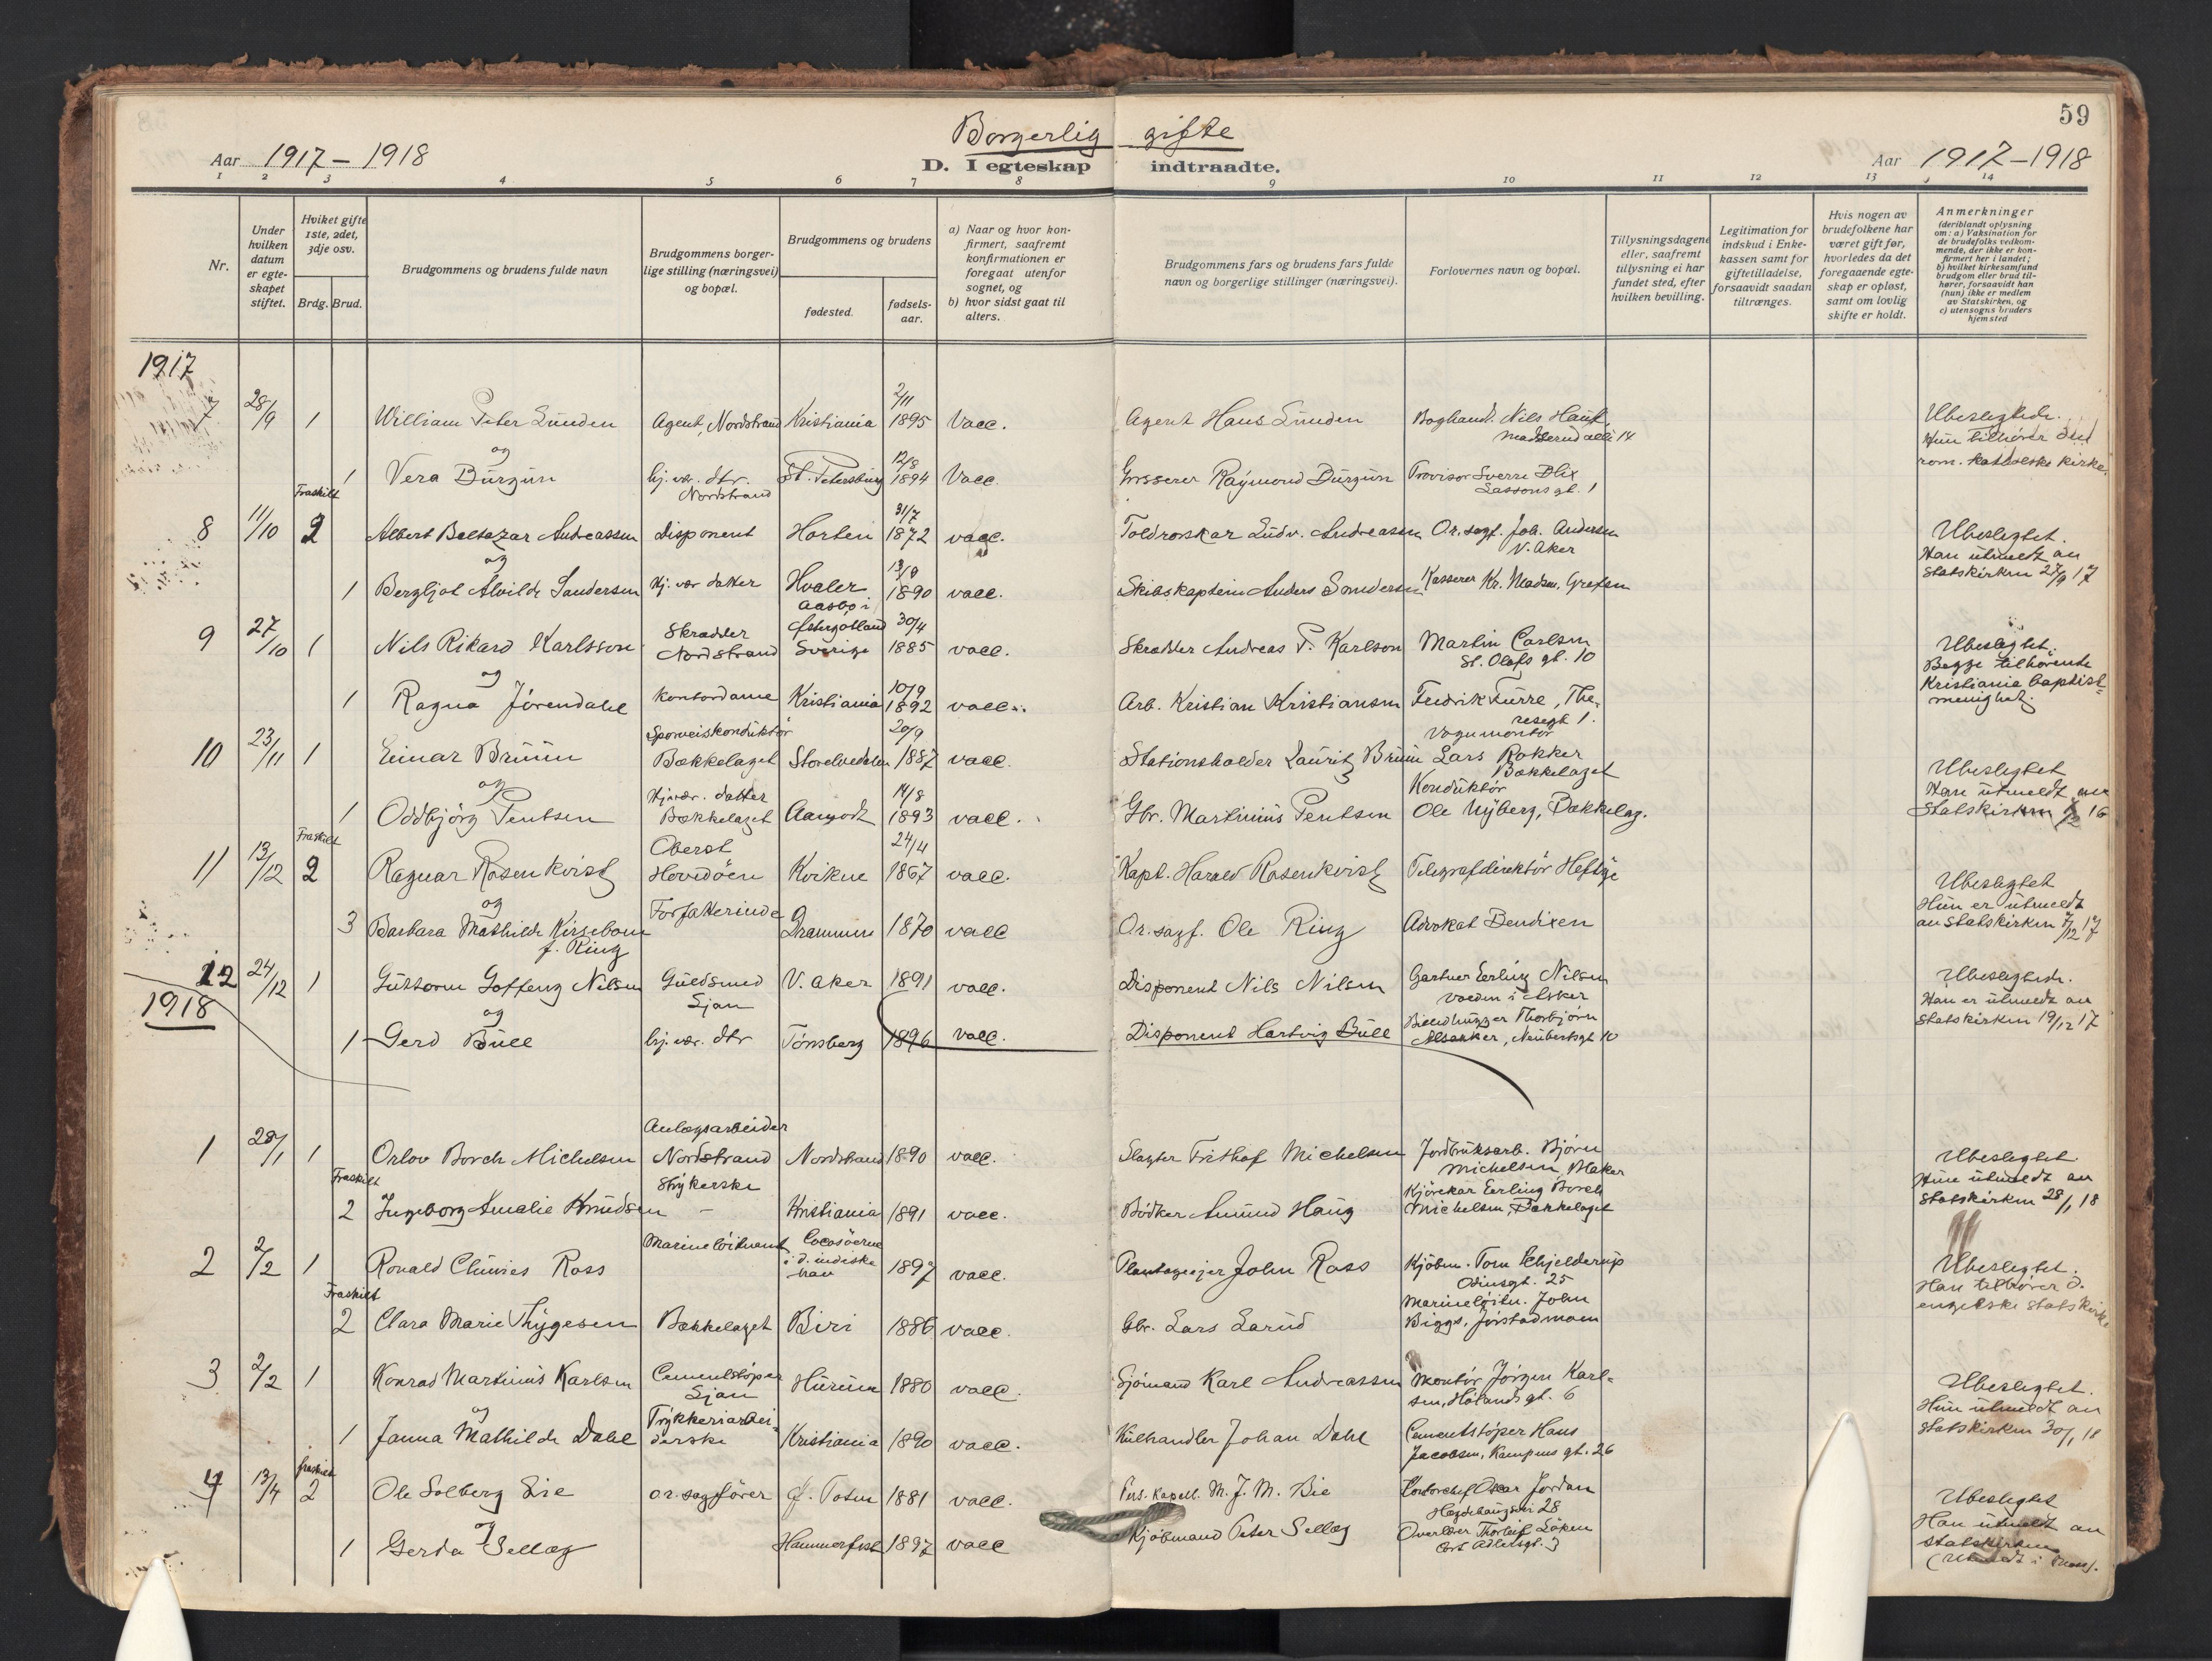 59
Borgerlig gifte
Aar 1917-1918
D. I egteskap indtraadte.
Aar 1917-1918
1 2 3 4 5 6 7 8 9 10 11 12 13 14
Nr.
Under hvilken datum er egteskapet stiftet.
Hviket gifte 1ste, 2det, 3dje osv.
Brdg. Brud.
Brudgommens og brudens fulde navn
Brudgommens borgerlige stilling (næringsvei) og bopæl.
Brudgommens og brudens
fødested.
fødselsaar.
a) Naar og hvor konfirmert, saafremt konfirmationen er foregaat utenfor sognet, og
b) hvor sidst gaat til alters.
Brudgommens fars og brudens fars fulde navn og borgerlige stillinger (næringsvei).
Forlovernes navn og bopæl.
Tillysningsdagene eller, saafremt tillysning ei har fundet sted, efter hvilken bevilling.
Legitimation for indskud i Enkekassen samt for giftetilladelse, forsaavidt saadan tiltrænges.
Hvis nogen av brudefolkene har været gift før, hvorledes da det foregaaende egteskap er opløst, samt om lovlig skifte er holdt.
Anmerkninger (deriblandt oplysning om: a) Vaksination for de brudefolks vedkommende, der ikke er konfirmert her i landet; b) hvilket kirkesamfund brudgom eller brud tilhører, forsaavidt han (hun) ikke er medlem av Statskirken, og c) utensogns bruders hjemsted
1917
7 28/9 1 William Peter Lunden Agent, Nordstrand Kristiania 2/11 1895 Vacc. Agent Hans Lunden Boghandl. Nils Hauff, Madserud allé 14 Ubeslegtede. Hun tilhører den rom. katolske kirke.
og
1 Vera Durgun hj. vær. dtr. Nordstrand St. Petersburg 12/8 1894 Vacc. Grosserer Raymond Durgun Provisor Sverre Blix Lassons gt. 1
8 11/10 Fraskilt 2 Albert Baltazar Andreassen disponent Horten 31/7 1872 vacc. Ludv. Andreassen O.r.sagf. Joh. Andersen V. Aker Ubeslegtet. Han utmeldt av statskirken 27/9 17
og
1 Bergljot Alvilde Sandersen Hj. vær datter Hvaler 1890 vacc. Skibskaptein Anders Kasserer Kr. Madsen, Grefsen
9 27/10 1 Nils Rikard Karlsson Skrædder Nordstrand Aasbo i Østergötland Sverige 30/4 1885 vacc. Skrædder Andreas P. Karlson Martin Carlsen St. Olafs gt. 10 Ubeslegtet. Begge tilhørende Kristiania baptistmenighet.
og
1 Ragna Jörendahl kontordame Kristiania 10/9 1892 vacc. Arb. Kristian Kristiansen Fredrik Furre, Theresegt 1.
10 23/11 1 Einar Bruun Sporveiskonduktör Bækkelaget Storelvedalen 20/9 1887 vacc. Stationsholder Lauritz Bruun Vognmontör Lars Rokker Bækkelaget Ubeslegtet Han utmeldt av Statskirken
og
1 Oddbjörg Pentsen Hj. vær. datter Bækkelaget Aamodt 14/8 1893 vacc. Gbr. Martinius Pentsen Konduktör Ole Nyberg, Bækkelag.
11 13/12 Fraskilt 2 Ragnar Rosenkvist Oberst Hovedöen Kvikne 24/4 1867 vacc. Kapt. Harald Rosenkvist Telegrafdirektör Heftye Ubeslegtet Hun er utmeldt av statskirken 7/12 17
og
3 Barbara Mathilde Kirsebom f. Ring Forfatterinde Drammen 1870 vacc O.r.sagf. Ole Ring Advokat Bendixen
12 24/12 1 Guttorm Goffeng Nilsen Guldsmed Ljan V. Aker 1891 vacc. Disponent Nils Nilsen Gartner Erling Nilsen i Asker Ubeslegtede. Han er utmeldt av statskirken 19/12 17
og
1918
1 Gerd Bull hj. vær. dtr Tönsberg 1896 vacc. Disponent Hartvig Bull Billedhugger Thorbjörn Alsaker, Neubertsgt 10
1 28/1 1 Orlov Borch Michelsen Anlægsarbeider Nordstrand Nordstrand 1890 vacc. Slagter Frithof Michelsen Jordbruksarb. Björn Michelsen, Ø. Aker Ubeslegtet. Hun utmeldt av Statskirken 28/1 18
Fraskilt 2 Ingeborg Amalie Knudsen Strykerske - Kristiania 1891 vacc. Bødker Amund Haug Kjörekar Erling Borch Michelsen, Bækkelaget
2 2/2 1 Ronald Clunies Ross Marinelöitnant Cocosöerne i d. indiske hav 1897 vacc. Plantageejer John Ross Kjöbm. Tom Schjelderup Odinsgt. 25 Ubeslegtet. Han tilhører d. engelske statskirke
Fraskilt 2 Clara Marie Thygesen Bækkelaget Biri 1886 vacc. Gbr. Lars Larud Marinelöitn. John Biggs, Jörstadmoen
3 2/2 1 Konrad Martinius Karlsen Cementstöper Ljan Hurum 1880 vacc. Sjömand Karl Andreassen Montör Jörgen Karlsen, Hølands gt. 6 Ubeslegtet. Hun utmeldt av statskirken 30/1 18
og
1 Janna Mathilde Dahl Trykkeriarbeiderske Kristiania 1890 vacc. Kulhandler Johan Dahl Cementstöper Hans Jacobsen, Kampens gt. 26
4 13/4 fraskilt 2 Ole Solberg Lie o.r. sagförer Ø. Toten 1881 vacc. Pers. kapell. M. J. M. Lie Kontorchef Oscar Jordan Hægdehaugsvei 28 Ubeslegtet Han utmeldt av statskirken
og
1 Gerda Selläg Hammerfest 1897 vacc Kjöbmand Peter Selläg Overlærer Thorleif Löken Cort Adelersgt. 3